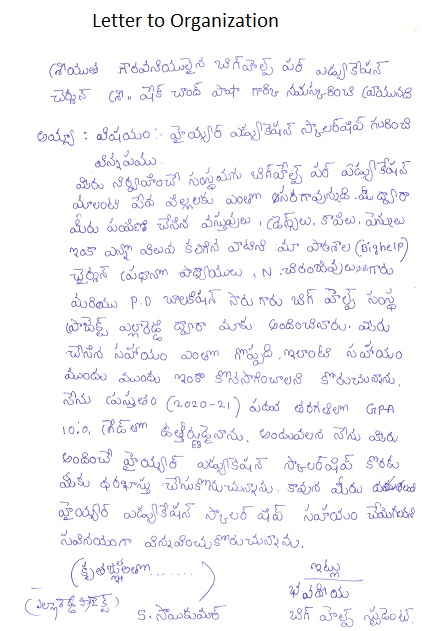 Letter to Organization
శ్రీయుత గౌరవనీయులైన బిగ్‌హెల్ప్ ఫర్ ఎడ్యుకేషన్
చైర్మన్ శ్రీ,, షేక్ చాంద్ పాషా గారికి నమస్కరించి వ్రాయునది
అయ్యా : విషయం:- హైయ్యర్ ఎడ్యుకేషన్ స్కాలర్‌షిప్ గురించి
విన్నపము.
మీరు నిర్వహించే సంస్థయగు బిగ్‌హెల్ప్ ఫర్ ఎడ్యుకేషన్
మాలాంటి పేద పిల్లలకు ఎంతో ఆసరగావున్నది. మీ ద్వారా
మీరు పంపిణీ చేసిన వస్తువులు, డ్రెస్సులు, కాపీలు, పెన్నులు
ఇంకా ఎన్నో విలువ కలిగిన వాటిని మా పాఠశాల (Bighelp)
ఛైర్మన్ ప్రధానోపాధ్యాయులు, N. చిరంజీవులు గారు
మరియు P.D బాలకిషన్ సారు గారు బిగ్ హెల్ప్ సంస్థ
ప్రాజెక్ట్ ఎల్లారెడ్డి ద్వారా మాకు అందించినారు. మీరు
చేసిన సహాయం ఎంతో గొప్పది. ఇలాంటి సహాయం
ముందు ముందు ఇంకా కొనసాగించాలని కోరుచున్నాను.
నేను ప్రస్తుతం (2020-21) పదవ తరగతిలో GPA
10.0, గ్రేడ్‌తో ఉత్తీర్ణుడైనాను. అందువలన నేను మీరు
అందించే హైయ్యర్ ఎడ్యుకేషన్ స్కాలర్‌షిప్ కొరకు
మీకు ధరఖాస్తు చేసుకొనుచున్నాను. కావున మీరు దయతలచి
హైయ్యర్ ఎడ్యుకేషన్ స్కాలర్ షిప్ సహాయం చేయగలరని
సవినయంగా విన్నవించుకోరుచున్నాను.
(కృతజ్ఞతలతో ........) ఇట్లు
భవదీయ
(ఎల్లారెడ్డి ప్రాజెక్ట్) S. సాయికుమార్ బిగ్ హెల్ప్ స్టుడెంట్.